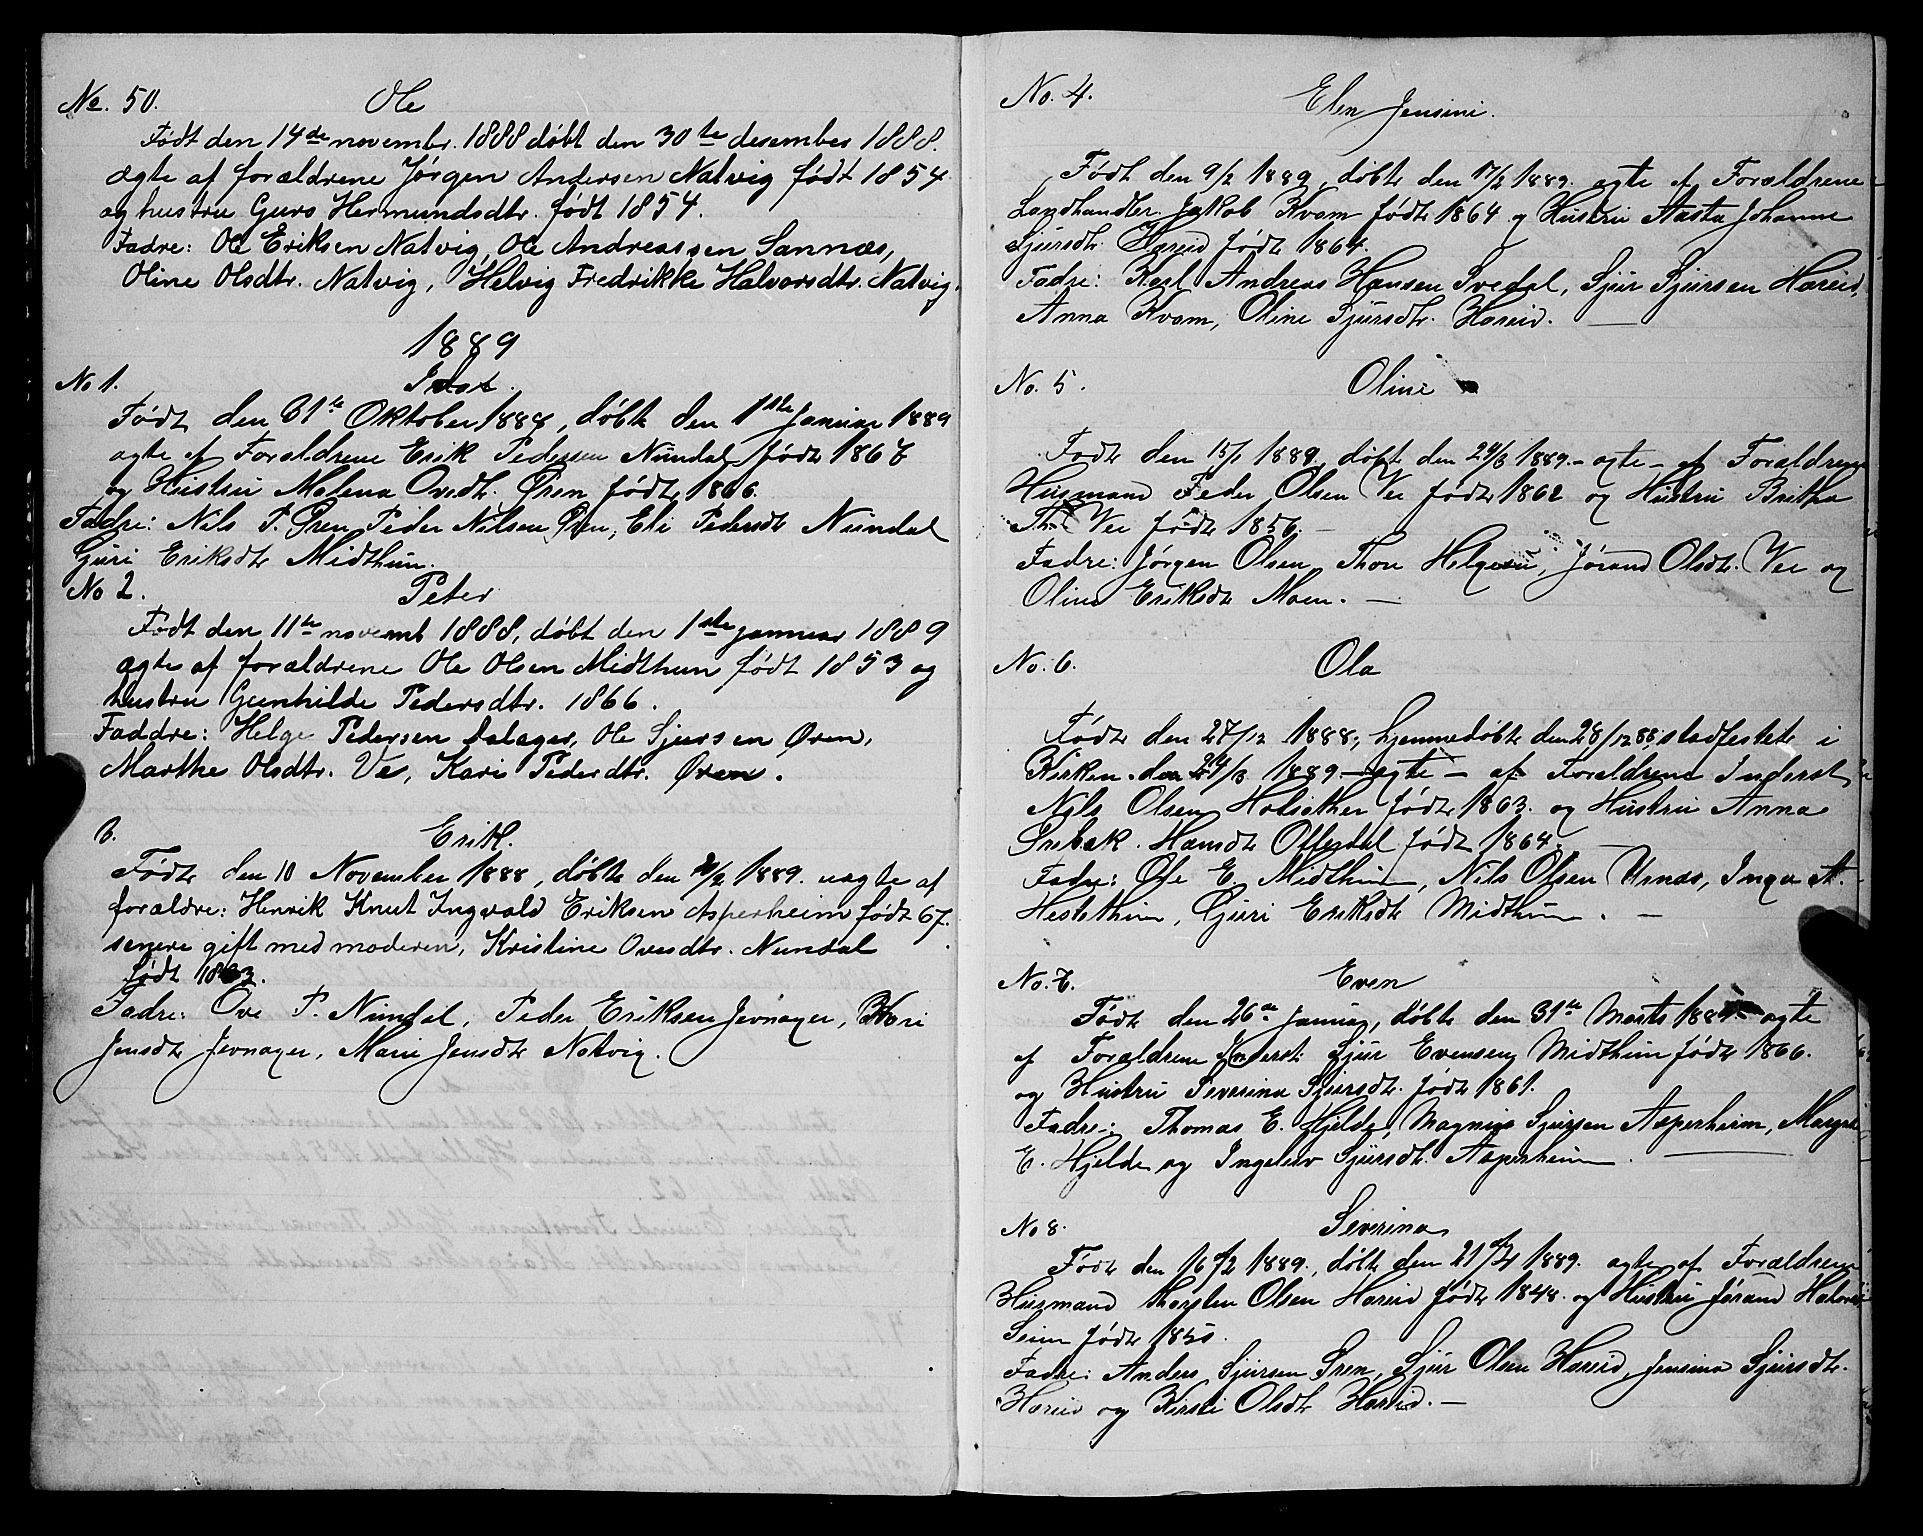 No. 50. Ole
Født den 14de novembr. 1888 døbt den 30te desember 1888.
ægte af forældrene Jørgen Andersen Natvig født 1854
og hustru Guro Hermundsdtr. født 1854.
Fadre: Ole Eriksen Natvig, Ole Andreassen Sannæs,
Oline Olsdtr. Natvig, Helvig Fredrikke Halvorsdtr. Natvig.
1889
No 1.
Født den 31te Oktober 1888, døbt den 1ste Januar 1889
ægte af Forældrene Erik Pedersen Nundal født 186
og Hustru Malena Ovedtr. Øren født 1866.
Fadre: Nils P. Øren, Peder Nilsen Øren, Eli Pedersdt Nundal
Guri Eriksdt Midthun.
No 2. Peter
Født den 11te novemb 1888, døbt den 1ste januar 1889
ægte af forældrene Ole Olsen Midthun født 1853 og
hustru Gunhilde Pedersdtr. 1866.
Faddre: Helge Pedersen Dalager, Ole Sjursen Øren,
Marthe Olsdtr. Ve, Kari Pederdtr. Øren.
3. Erik.
Født den 10 November 1888, døbt den /2 1889. uægte af
forældre: Henrik Knut Ingvald Eriksen Asperheim født 67.
senere gift med moderen, Kristine Ovesdtr. Nundal
født 1863.
Fadre: Ove P. Nundal, Peder Eriksen Jevnager, Kari
Jensdt Jevnager, Marie Jensdt Natvig.
No. 4. Elen Jensine.
Født den 9/2 1889, døbt den 17/2 1889. ægte af Forældrene
Landhandler Jakob Kvam født 1864 og Hustru Aasta Johanne
Sjursdt. Hæreid født 1864.
Fadre: Karl Andreas Hansen Svedal, Sjur Sjursen Hæreid,
Anna Kvam, Oline Sjursdt. Hæreid.
No. 5. Oline
Født den 15/1 1889, døbt den 24/3 1889. - ægte - af Forældrene
Husmand Peder Olsen Vee født 1862 og Hustru Britha
Th. Vee født 1856. -
Fadre: Jørgen Olsen, Thore Helgesen, Jørand Olsdt. Vee og
Oline Eriksdt Moen. -
No. 6. Ola
Født den 27/12 1888, hjemmedøbt den 28/12 88, stadfestet i
Kirken den 24/3 1889 - ægte - af Forældrene Inderst
Nils Olsen Holsether født 1863. og Hustru Anna
Hansdt Offerdal født 1864.
Fadre: Ole E. Midthun, Nils Olsen Urnæs, Inga A.
Hestethun, Guri Eriksdt Midthun. -
No. 7. Even
Født den 26de Januar, døbt den 31te Marts 1889 ægte
af Forældrene Inderst Sjur Evensen Midthun født 1866.
og Hustru Severina Sjursdt. født 1861.
Fadre: Thomas E. Hjelde, Magnus Sjursen Asperheim, Margrete
E. Hjelde og Ingeleiv Sjursdt. Asperheim.
No 8. Severina
Født den 16/2 1889, døbt den 21/4 1889. ægte af Forældrene
Husmand Thorsten Olsen Hæreid født 1848. og Hustru Jørand
Seim født 1850.
Fadre: Anders Sjursen Øren, Sjur Olsen Hæreid, Jensina Sjursdt.
Hæreid og Kirsti Olsdt Hæreid. -